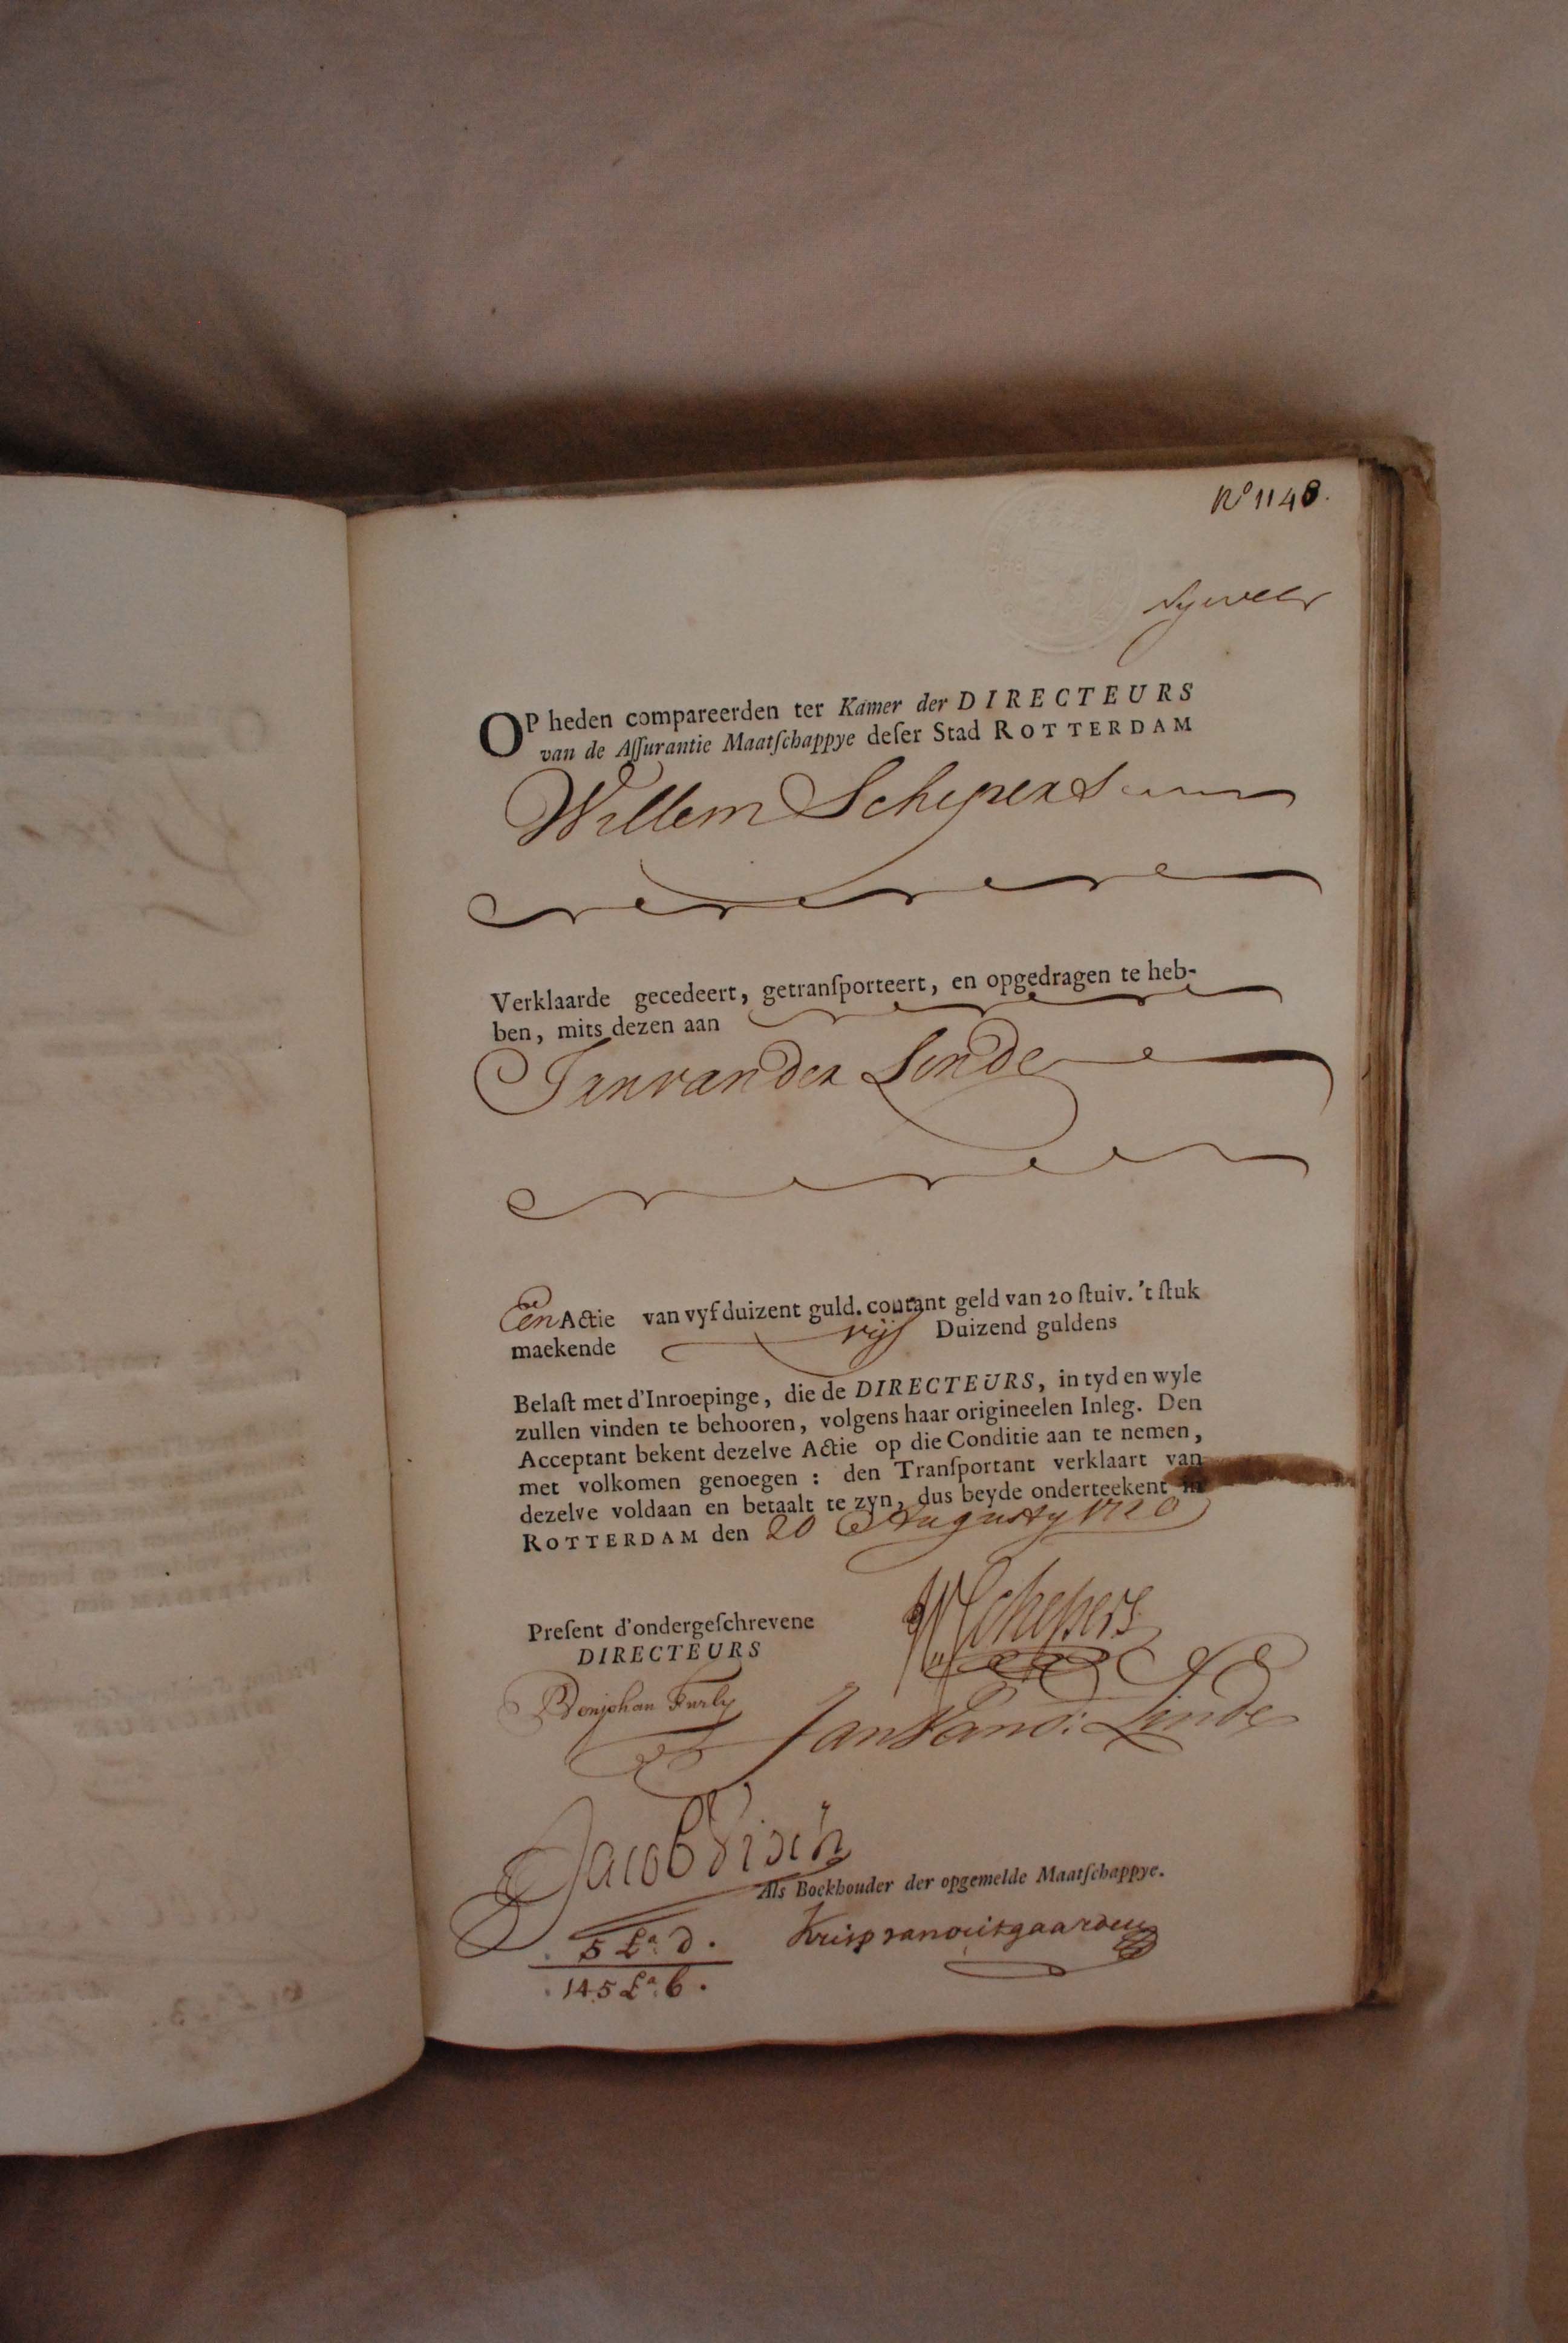 No 1148.
OP heden compareerden ter Kamer der DIRECTEURS
van de Aſſurantie Maatſchappye deſer Stad ROTTERDAM
Willem Schepers
Verklaarde gecedeert, getranſporteert, en opgedragen te heb-
ben, mits dezen aan
Jan van der Linde
Een Actie van vyf duizent guld. courant geld van 20 ſtuiv. 't ſtuk
maekende vijf Duizend guldens
Belaſt met d'Inroepinge, die de DIRECTEURS, in tyd en wyle
zullen vinden te behooren, volgens haar origineelen Inleg. Den
Acceptant bekent dezelve Actie op die Conditie aan te nemen,
met volkomen genoegen: den Tranſportant verklaart van
dezelve voldaan en betaalt te zyn, dus beyde onderteekent in
ROTTERDAM den 20 Augusty 1720
W Schepers
Preſent d'ondergeſchrevene
DIRECTEURS
Benjohan Furly
Jan Van d: Linde
Jacob
Als Boekhouder der opgemelde Maatſchappye.
5 La. d.
145 La. b.